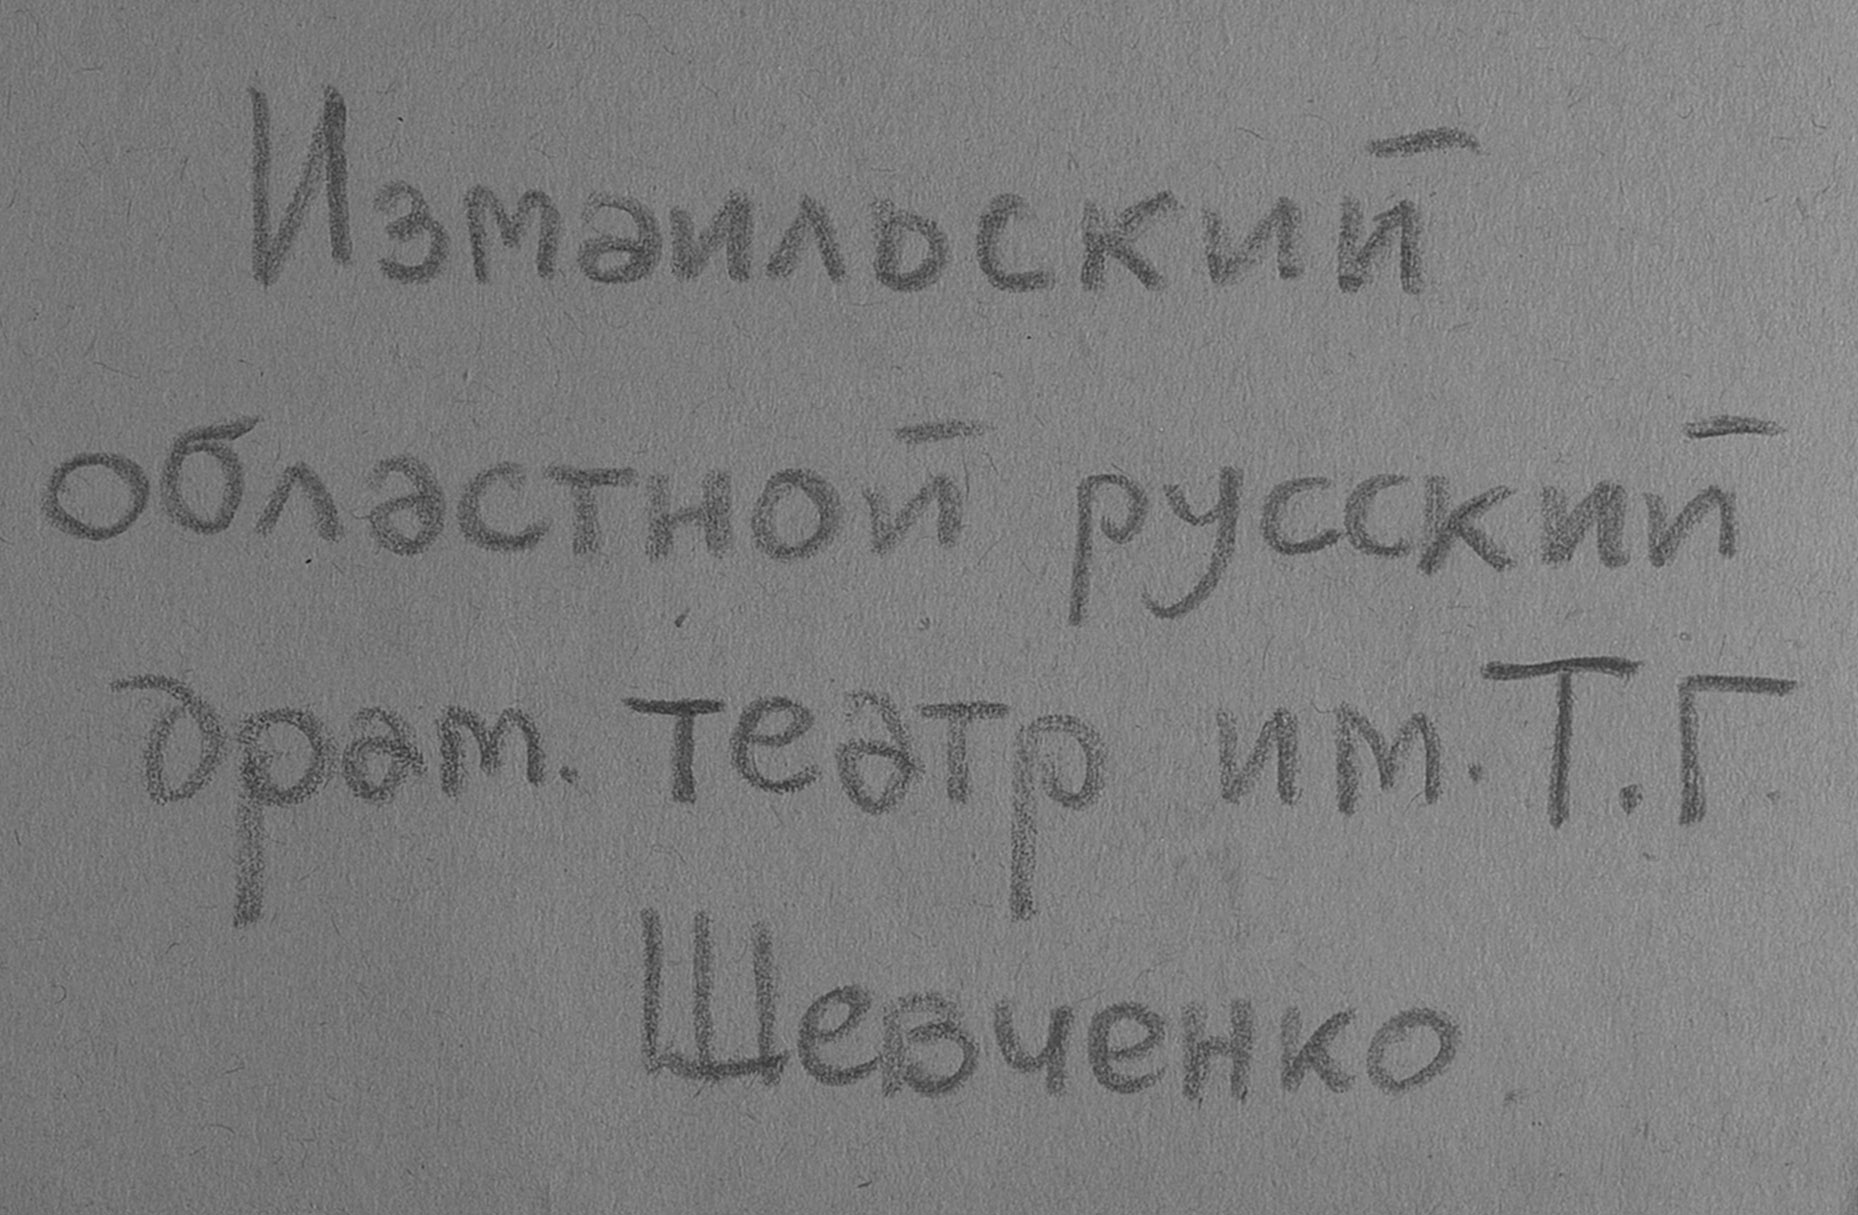 Измаильский
областной русский
драм. театр им. Т.Г.
Шевченко